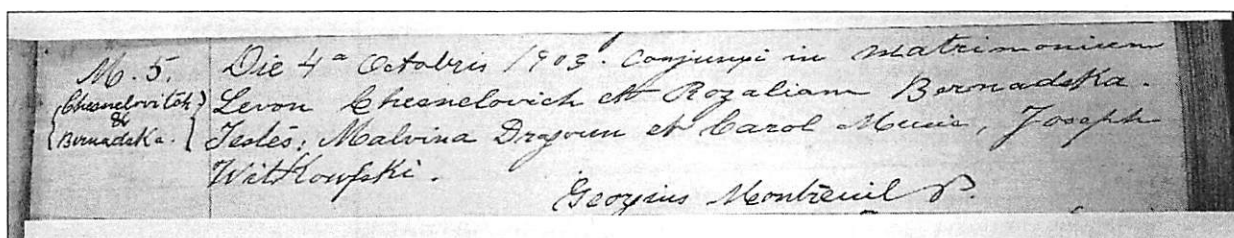 M. 5.
Chesnelovitch
&
Bernadska.
Die 4ª Octobris 1903. Conjunxi in matrimonium
Levon Chesnelovich et Rozaliam Bernadska.
Testes: Malvina Dragoun et Carol Music, Joseph
Witkowfski.
Georgius Montreuil P.